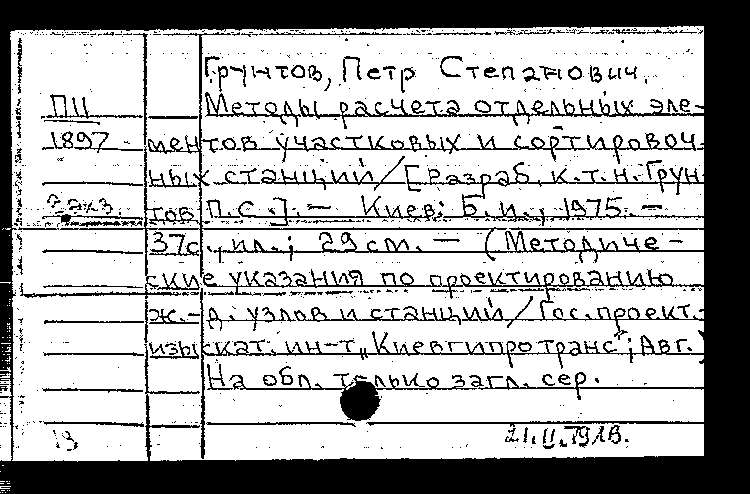 Грунтов, Петр Степанович.
ПЦ Методы расчета отдельных эле-
1897 ментов участковых и сортировоч-
ных станций/[Разраб. к.т.н. Грун-
2 экз. тов П.С.]. — Киев: Б.и., 1975. —
37с., ил.; 29см. — (Методиче-
ские указания по проектированию
ж.-д. узлов и станций/Гос. проект.-
изыскат. ин-т „Киевгипротранс"; Авт.)
На обл. только загл. сер.
13